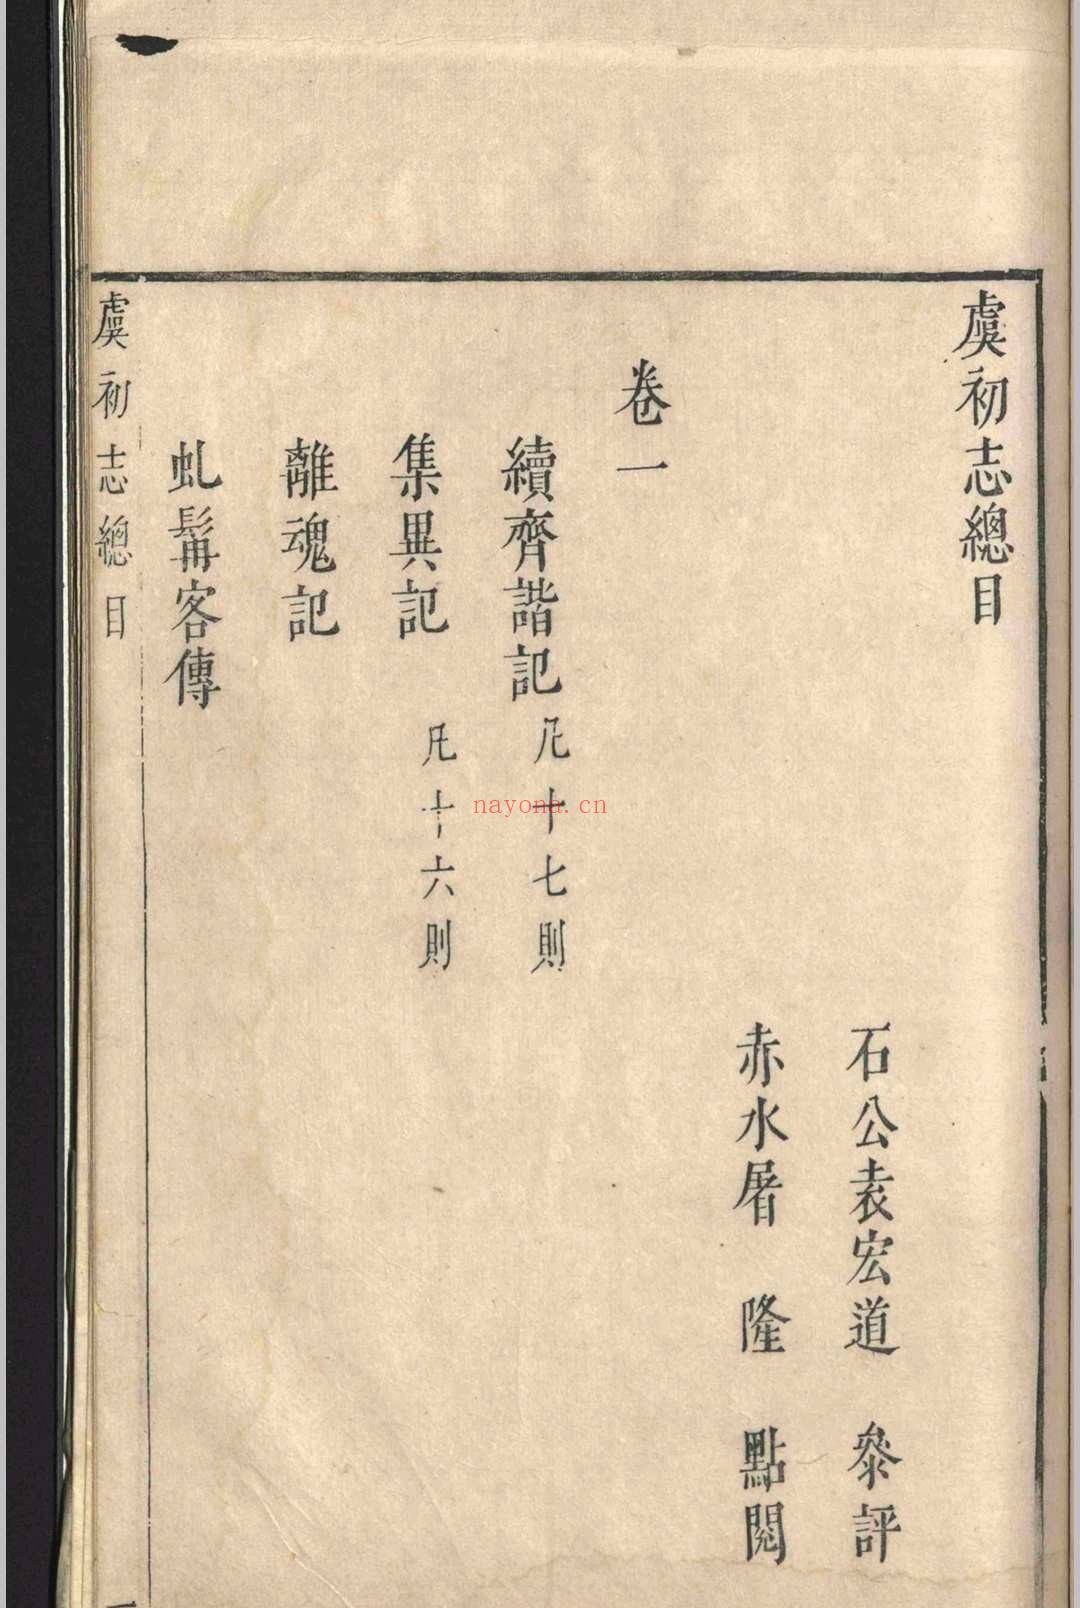 虞初志總目
石公袁宏道 參評
赤水屠 隆 點閱
卷一
續齊諧記 凡十七則
集異記 凡十六則
離魂記
虬髯客傳
虞初志總目
nayona.cn